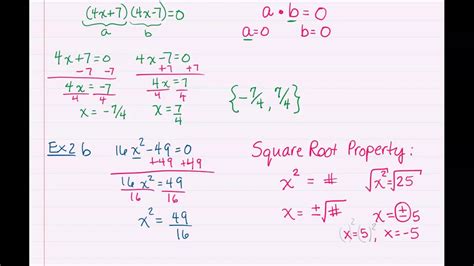 (4x+7)(4x-7)=0
a b
a • b = 0
a=0 b=0
4x+7=0 4x-7=0
-7 -7 +7 +7
4x=-7 4x=7
4 4 4 4
x = -7/4 x = 7/4
{-7/4, 7/4}
Ex2b 16x²-49=0
+49 +49
16x² = 49
16 16
x² = 49/16
Square Root Property:
x² = # √x² = √25
x = ±√# x = ±5
(x=5)², x=-5